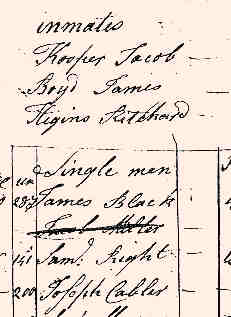 inmates
Hooper Jacob
Boyd James
Higins Ritchard
Single men
James Black
Jacob
Sam.l Right
200 Joseph Cabler